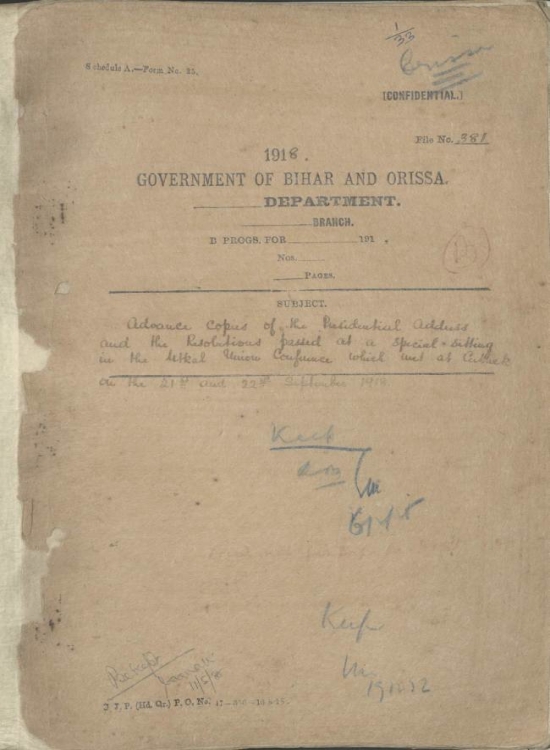 1/33
Orissa
Schedule A.—Form No. 25.
[CONFIDENTIAL.]
File No. 381
1918.
GOVERNMENT OF BIHAR AND ORISSA.
DEPARTMENT.
BRANCH.
B PROGS. FOR 191 .
Nos.
PAGES.
SUBJECT.
Advance copies of the Presidential Address
and the Resolutions passed at a special sitting
in the Utkal Union Conference which met at Cuttack
on the 21st and 22nd September 1918
Keep
Keep
B. J. P. (Hd. Qr.) P. O. No.